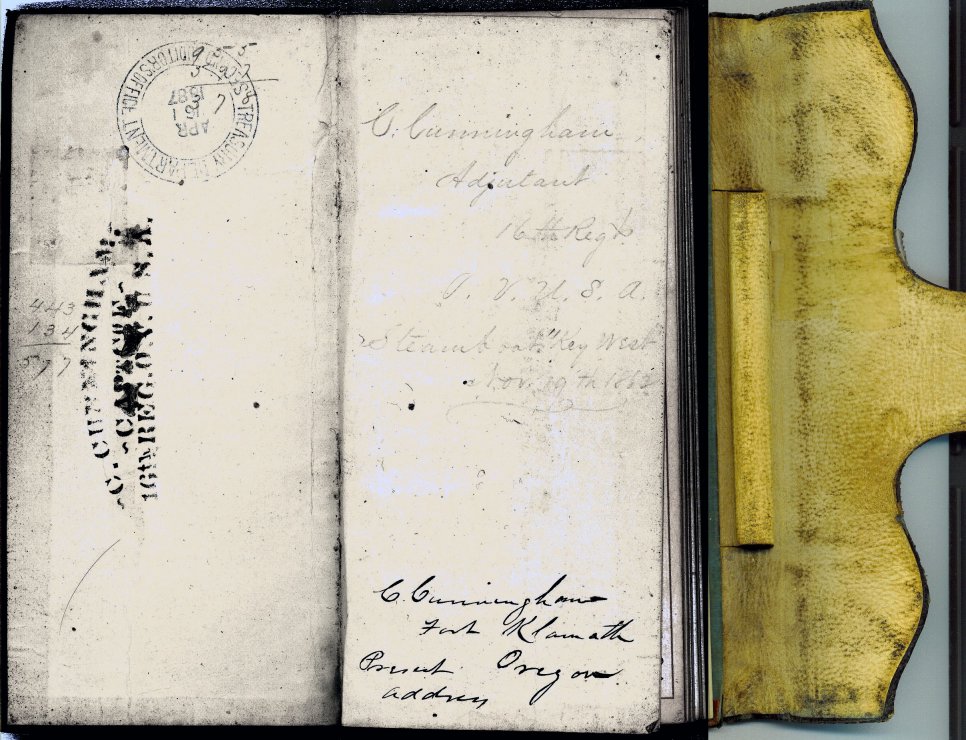 TREASURY DEPARTMENT
AUDITOR'S OFFICE
APR
1887
443
134
577
C. CUNNINGHAM,
CAPT. CO. E
16th REG. O.V. U.S.A.
C. Cunningham,
Adjutant
16th Regt
O. V. U. S. A.
Steamboat "Key West"
Nov. 19th 1862
C. Cunningham
Fort Klamath
Present Oregon
address